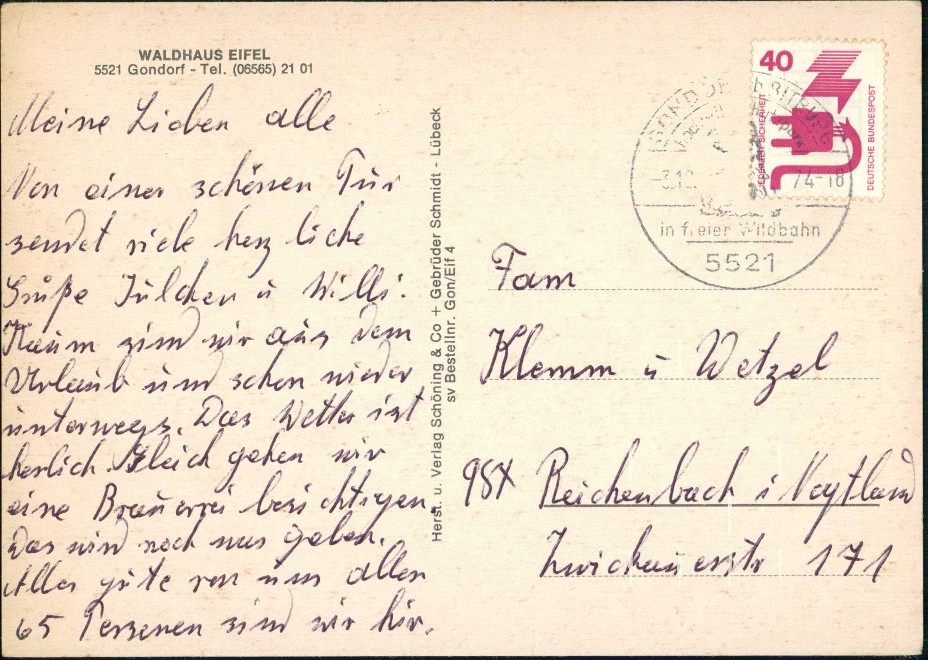 WALDHAUS EIFEL
5521 Gondorf - Tel. (06565) 21 01
Meine Lieben alle
Von einer schönen Tur
sendet viele herz liche
Grüße Julchen u Willi.
Kaum sind wir aus dem
Urlaub und schon wieder
unterwegs. Das Wetter ist
herlich. Gleich gehen wir
eine Brauerei besichtigen.
Das wird noch was geben.
Alles gute von uns allen
65 Personen sind wir hir.
Herst. u. Verlag Schöning & Co + Gebrüder Schmidt - Lübeck
sv Bestellnr. Gon/Eif 4
40
JEDERZEIT SICHERHEIT
DEUTSCHE BUNDESPOST
GONDORF BITBURG
74-18
in freier Wildbahn
5521
Fam
Klemm u Wetzel
98X Reichenbach i Vogtland
Zwickauerstr 171